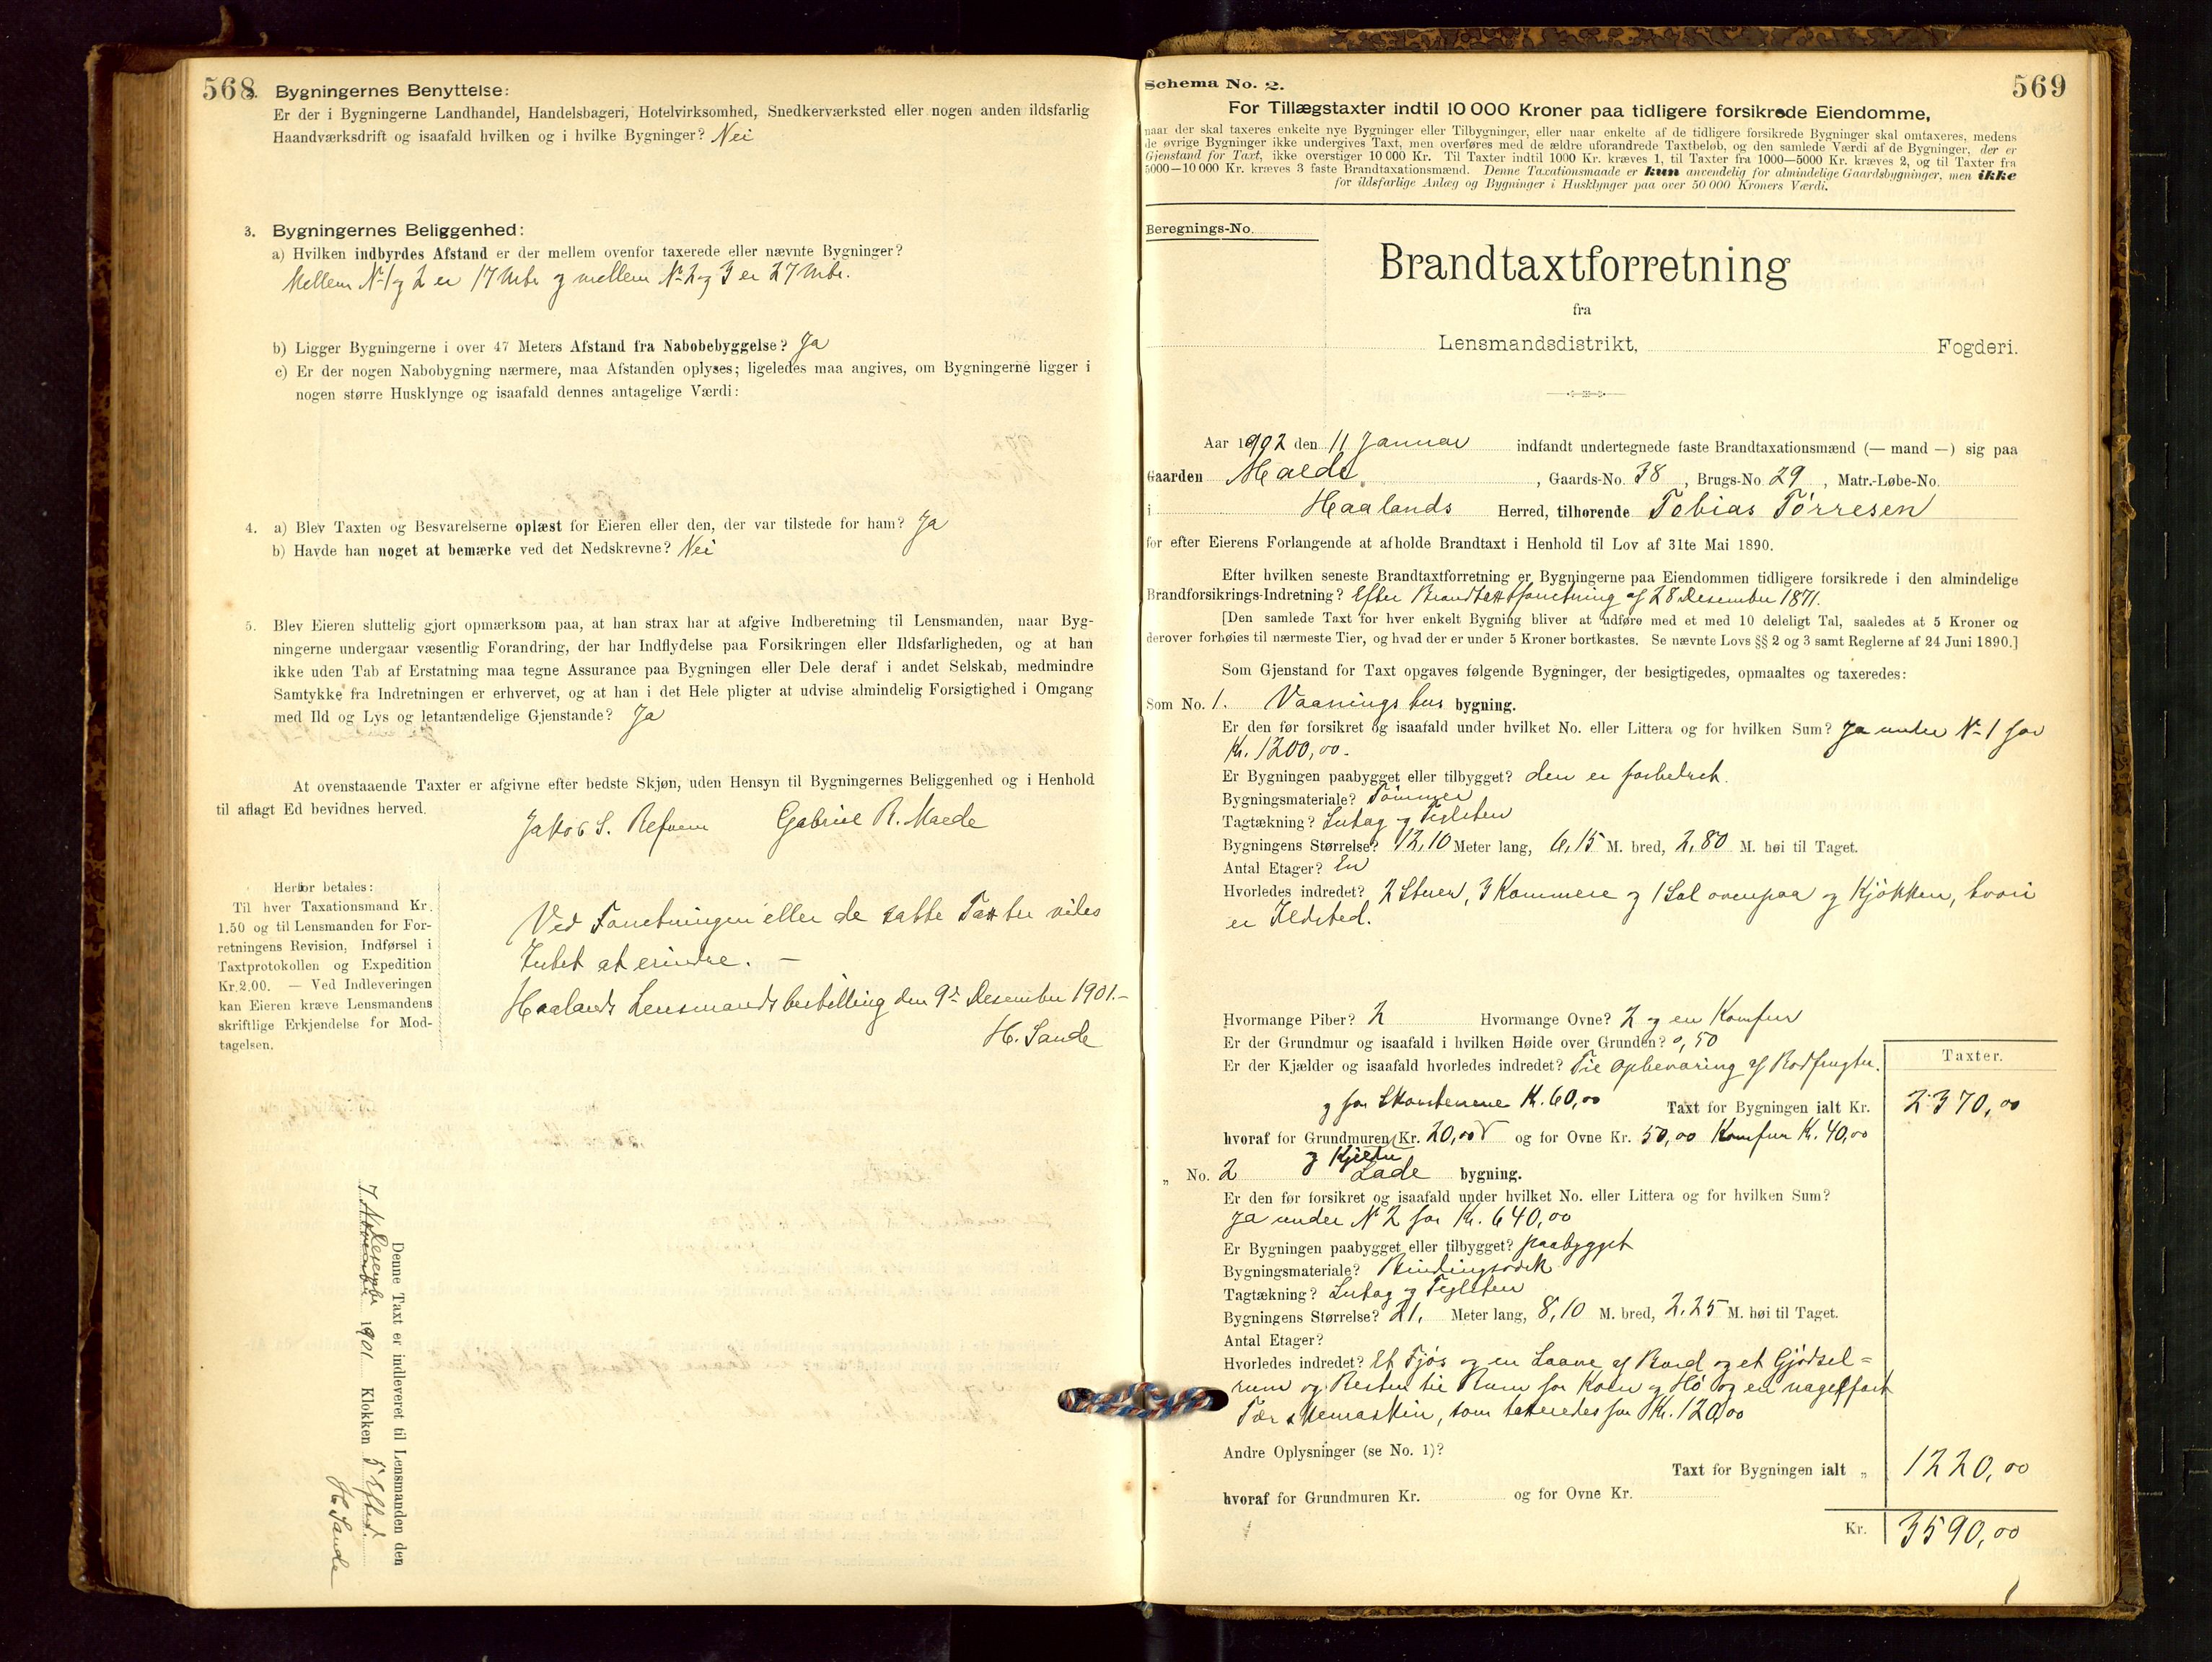 568
2. Bygningernes Benyttelse:
Er der i Bygningerne Landhandel, Handelsbageri, Hotelvirksomhed, Snedkerværksted eller nogen anden ildsfarlig
Haandværksdrift og isaafald hvilken og i hvilke Bygninger? Nei
3. Bygningernes Beliggenhed:
a) Hvilken indbyrdes Afstand er der mellem ovenfor taxerede eller nævnte Bygninger?
Mellem No 1 og 2 er 17 Mtr og mellem No 2 og 3 er 27 Mtr.
b) Ligger Bygningerne i over 47 Meters Afstand fra Nabobebyggelse? Ja
c) Er der nogen Nabobygning nærmere, maa Afstanden oplyses; ligeledes maa angives, om Bygningerne ligger i
nogen større Husklynge og isaafald dennes antagelige Værdi:
4. a) Blev Taxten og Besvarelserne oplæst for Eieren eller den, der var tilstede for ham? Ja
b) Havde han noget at bemærke ved det Nedskrevne? Nei
5. Blev Eieren sluttelig gjort opmærksom paa, at han strax har at afgive Indberetning til Lensmanden, naar Byg-
ningerne undergaar væsentlig Forandring, der har Indflydelse paa Forsikringen eller Ildsfarligheden, og at han
ikke uden Tab af Erstatning maa tegne Assurance paa Bygningen eller Dele deraf i andet Selskab, medmindre
Samtykke fra Indretningen er erhvervet, og at han i det Hele pligter at udvise almindelig Forsigtighed i Omgang
med Ild og Lys og letantændelige Gjenstande? Ja
At ovenstaaende Taxter er afgivne efter bedste Skjøn, uden Hensyn til Bygningernes Beliggenhed og i Henhold
til aflagt Ed bevidnes herved.
Jakob S. Refvem Gabriel R. Maede
Herfor betales:
Til hver Taxationsmand Kr.
1.50 og til Lensmanden for For-
retningens Revision, Indførsel i
Taxtprotokollen og Expedition
Kr. 2.00. — Ved Indleveringen
kan Eieren kræve Lensmandens
skriftlige Erkjendelse for Mod-
tagelsen.
Ved Forretningen eller de satte Taxter vides
Intet at erindre. —
Haalands Lensmandsbestilling den 9de Desember 1901.—
H. Sande
Denne Taxt er indleveret til Lensmanden den
7 Desembr 1901 Klokken 5 Efterm.
H. Sande
569
Schema No. 2.
For Tillægstaxter indtil 10 000 Kroner paa tidligere forsikrede Eiendomme,
naar der skal taxeres enkelte nye Bygninger eller Tilbygninger, eller naar enkelte af de tidligere forsikrede Bygninger skal omtaxeres, medens
de øvrige Bygninger ikke undergives Taxt, men overføres med de ældre uforandrede Taxtbeløb, og den samlede Værdi af de Bygninger, der er
Gjenstand for Taxt, ikke overstiger 10 000 Kr. Til Taxter indtil 1000 Kr. kræves 1, til Taxter fra 1000—5000 Kr. kræves 2, og til Taxter fra
5000—10 000 Kr. kræves 3 faste Brandtaxationsmænd. Denne Taxationsmaade er kun anvendelig for almindelige Gaardsbygninger, men ikke
for ildsfarlige Anlæg og Bygninger i Husklynger paa over 50 000 Kroners Værdi.
Beregnings-No.
Brandtaxtforretning
fra
Lensmandsdistrikt, Fogderi.
Aar 1902 den 11 Januar indfandt undertegnede faste Brandtaxationsmænd (— mand —) sig paa
Gaarden Malde, Gaards-No. 38, Brugs-No. 29, Matr.-Løbe-No.
i Haalands Herred, tilhørende Tobias Tørresen
for efter Eierens Forlangende at afholde Brandtaxt i Henhold til Lov af 31te Mai 1890.
Efter hvilken seneste Brandtaxtforretning er Bygningerne paa Eiendommen tidligere forsikrede i den almindelige
Brandforsikrings-Indretning? Efter Brandtaxtforretning af 28 Desember 1871.
[Den samlede Taxt for hver enkelt Bygning bliver at udføre med et med 10 deleligt Tal, saaledes at 5 Kroner og
derover forhøies til nærmeste Tier, og hvad der er under 5 Kroner bortkastes. Se nævnte Lovs §§ 2 og 3 samt Reglerne af 24 Juni 1890.]
Som Gjenstand for Taxt opgaves følgende Bygninger, der besigtigedes, opmaaltes og taxeredes:
Som No. 1. Vaaningshus bygning.
Er den før forsikret og isaafald under hvilket No. eller Littera og for hvilken Sum? Ja under No 1 for
Kr. 1200,00.
Er Bygningen paabygget eller tilbygget? den er forbedret.
Bygningsmateriale? Tømmer
Tagtækning? Sutag og Teglsten
Bygningens Størrelse? 12,10 Meter lang, 6,15 M. bred, 2,80 M. høi til Taget.
Antal Etager? En
Hvorledes indredet? 2 Stuer, 3 Kammere og 1 Sal ovenpaa og Kjøkken, hvori
er Ildsted.
Hvormange Piber? 2 Hvormange Ovne? 2 og en Komfur
Er der Grundmur og isaafald i hvilken Høide over Grunden? 0,50
Er der Kjælder og isaafald hvorledes indredet? Til Opbevaring af Rodfrugter.
Taxter.
og for Skorstenene Kr. 60,00 Taxt for Bygningen ialt Kr. 2370,00
hvoraf for Grundmuren Kr. 20,00 og for Ovne Kr. 50,00 Komfur Kr. 40,00
og Kjelder
„ No. 2 Lade bygning.
Er den før forsikret og isaafald under hvilket No. eller Littera og for hvilken Sum?
Ja under No 2 for Kr. 640,00
Er Bygningen paabygget eller tilbygget? paabygget
Bygningsmateriale? Bindingsværk
Tagtækning? Sutag og Teglsten
Bygningens Størrelse? 21, Meter lang, 8,10 M. bred, 2.25 M. høi til Taget.
Antal Etager?
Hvorledes indredet? Et Fjøs og en Laave af Bord og et Gjødsel=
rum og Resten til Rum for Korn og Hø og en nagelfast
Tærskemaskin, som taxeredes for Kr. 120,00
Andre Oplysninger (se No. 1)?
Taxt for Bygningen ialt „ 1220,00
hvoraf for Grundmuren Kr. og for Ovne Kr.
Kr. 3590,00